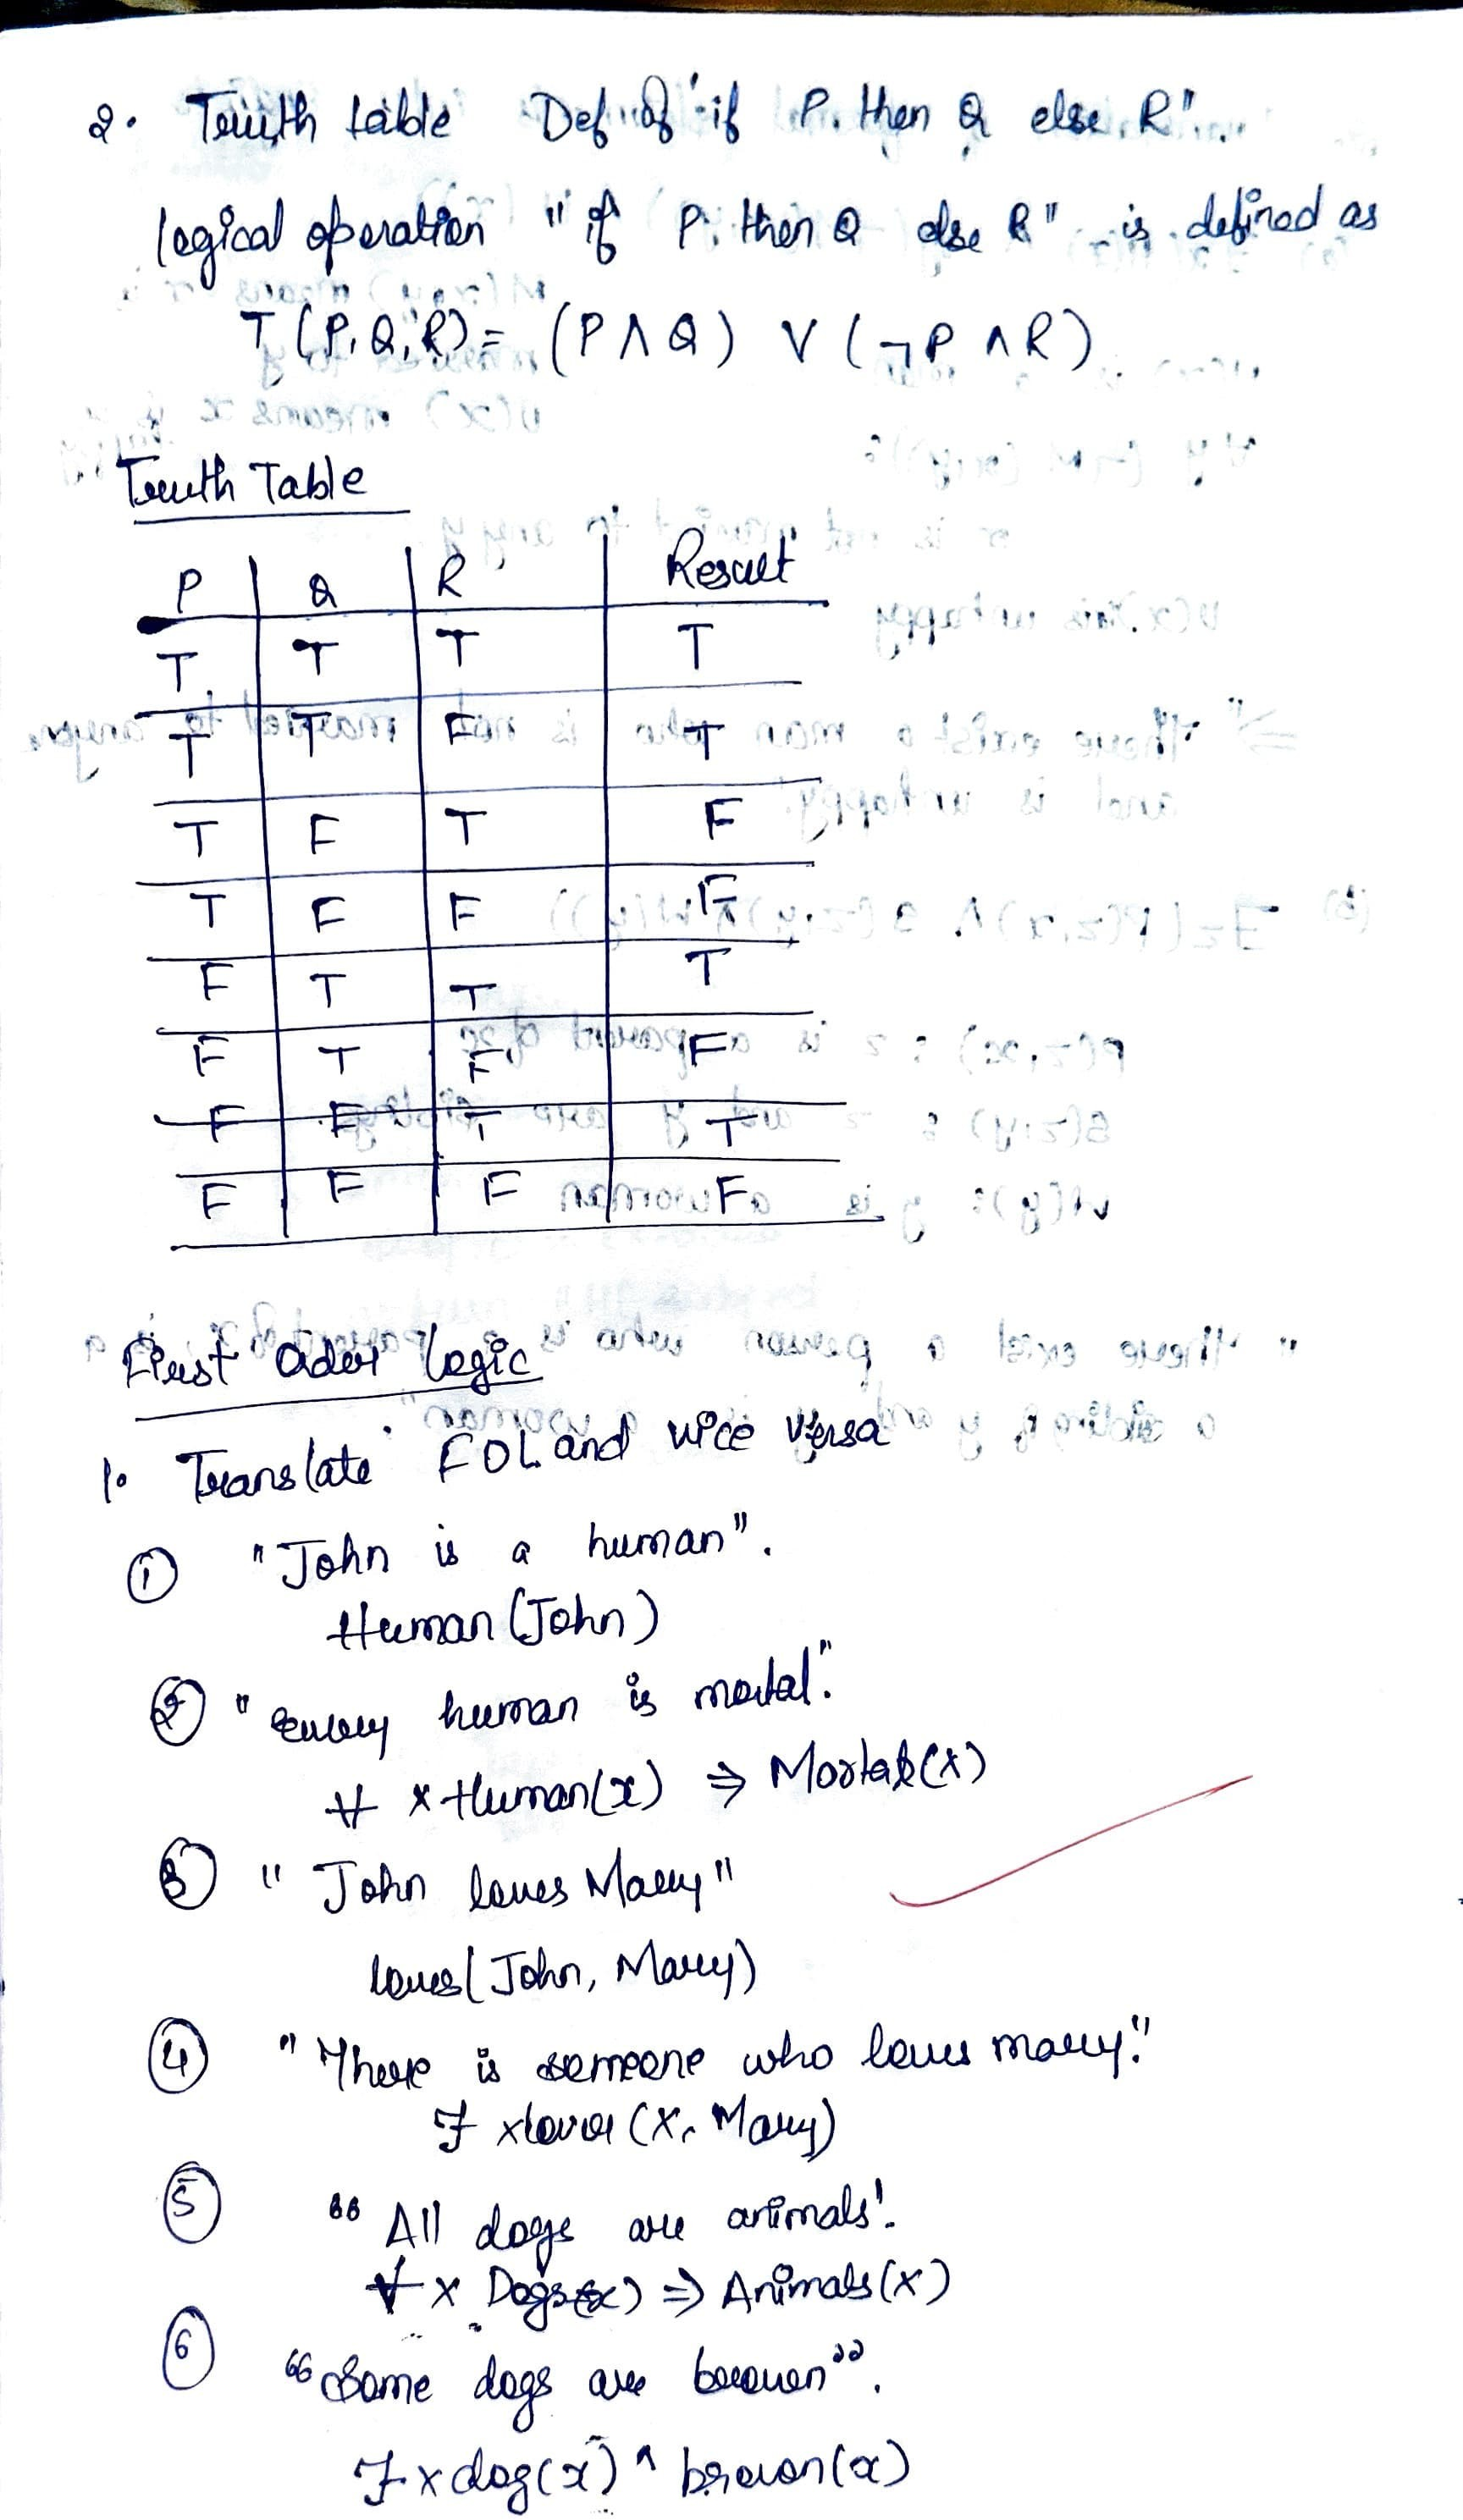 2. Truth table Def of "if P. then Q else R".
logical operation "if P. then Q else R" is defined as
T (P, Q, R) = (P ∧ Q) ∨ (¬P ∧ R)
Truth Table
P Q R Result
T T T T
T T F T
T F T F
T F F F
F T T T
F T F F
F F T T
F F F F
First Order Logic
1. Translate FOL and vice versa
① "John is a human".
Human (John)
② "Every human is mortal".
∀ x Human(x) ⇒ Mortal(x)
③ "John loves Mary"
loves (John, Mary)
④ "There is someone who loves mary."
∃ x (x, Mary)
⑤ "All dogs are animals".
∀ x Dogs(x) ⇒ Animals(x)
⑥ "Some dogs are brown".
∃ x dog(x) ∧ brown(x)